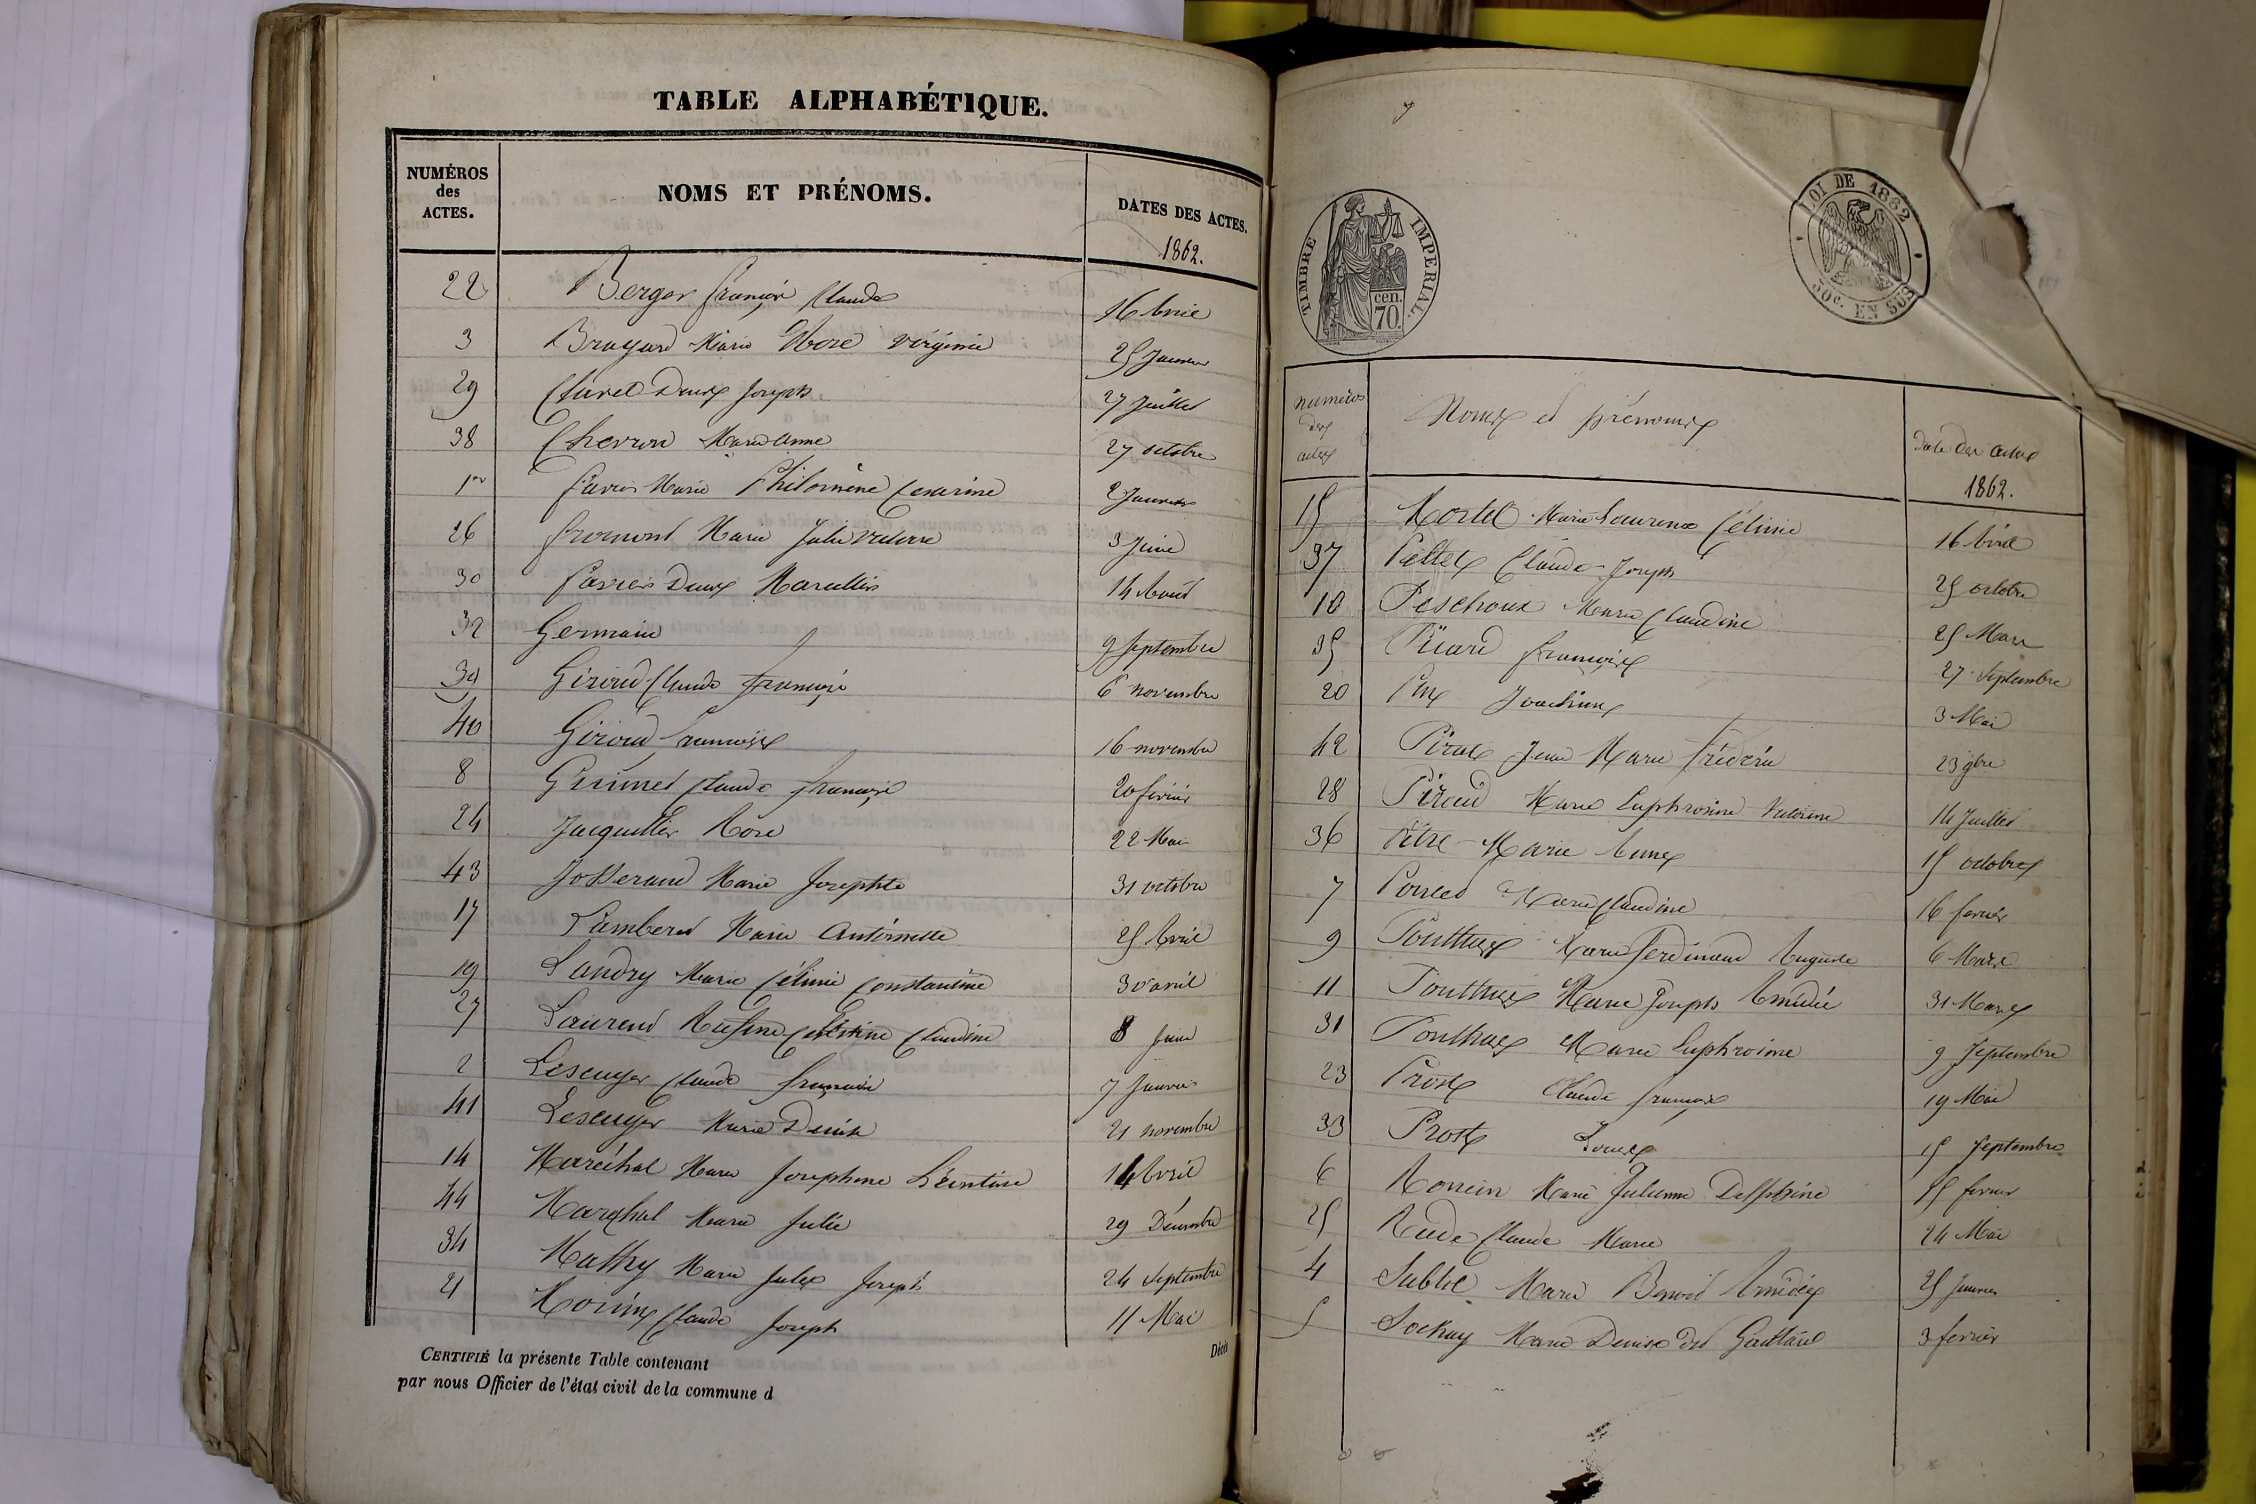 TABLE ALPHABÉTIQUE.
NUMÉROS des ACTES. NOMS ET PRÉNOMS. DATES DES ACTES.
1862.
22 Berger françois Claude 16 Avril
3 Bruyard Marie Rose virginie 25 Janvier
29 Clavel Denis Joseph 27 Juillet
38 Chevron Marie anne 27 octobre
1er favier Marie Philomène Cesarine 2 Janvier
26 fromont Marie Julie victoire 3 Juin
30 favier Denis Marcellin 14 Août
32 Germain 9 septembre
39 Giroud Claude françois 6 novembre
40 Giroud françois 16 novembre
8 Claude françois 20 février
24 Jacquillier Rose 22 Mai
43 Josserand Marie Josephte 31 octobre
17 Lambert Marie Antoinette 25 Avril
19 Landry Marie Célinie Constantine 30 avril
27 Laurent Célestine Claudine 8 Juin
2 Lescuyer Claude françois 7 Janvier
41 Lescuyer Marie Denise 21 novembre
14 Maréchal Marie Josephine Léontine 14 Avril
44 Maréchal Marie Julie 29 Décembre
34 Mathy Marie Jules Joseph 24 septembre
21 Claude Joseph 11 Mai
CERTIFIÉ la présente Table contenant
par nous Officier de l'état civil de la commune d
Décès
7
TIMBRE IMPERIAL.
70 cen.
LOI DE 1862
50c. EN SUS
numéros des actes Noms et prénoms Date des actes
1862.
15 Mortel Marie Laurence Célinie 16 Avril
37 Claude Joseph 25 octobre
10 Peschoux Marie Claudine 25 Mars
35 françois 27 septembre
20 Joachim 3 Mai
42 Jean Marie frédéric 23 9bre
28 Piroud Marie Euphrosine 14 Juillet
36 Marie 15 octobre
7 Poncet Marie Claudine 16 février
9 Ponthus Marie ferdinand Auguste 6 Mars
11 Ponthus Marie Joseph Amédée 31 Mars
31 Ponthus Marie Euphrosine 9 septembre
23 Prost Claude françois 19 Mai
33 Prost Louis 15 septembre
6 Marie Julienne Delphine 15 février
25 Rude Claude Marie 24 Mai
4 Marie Benoit Amédée 25 Janvier
5 Sochay Marie Denise 3 février